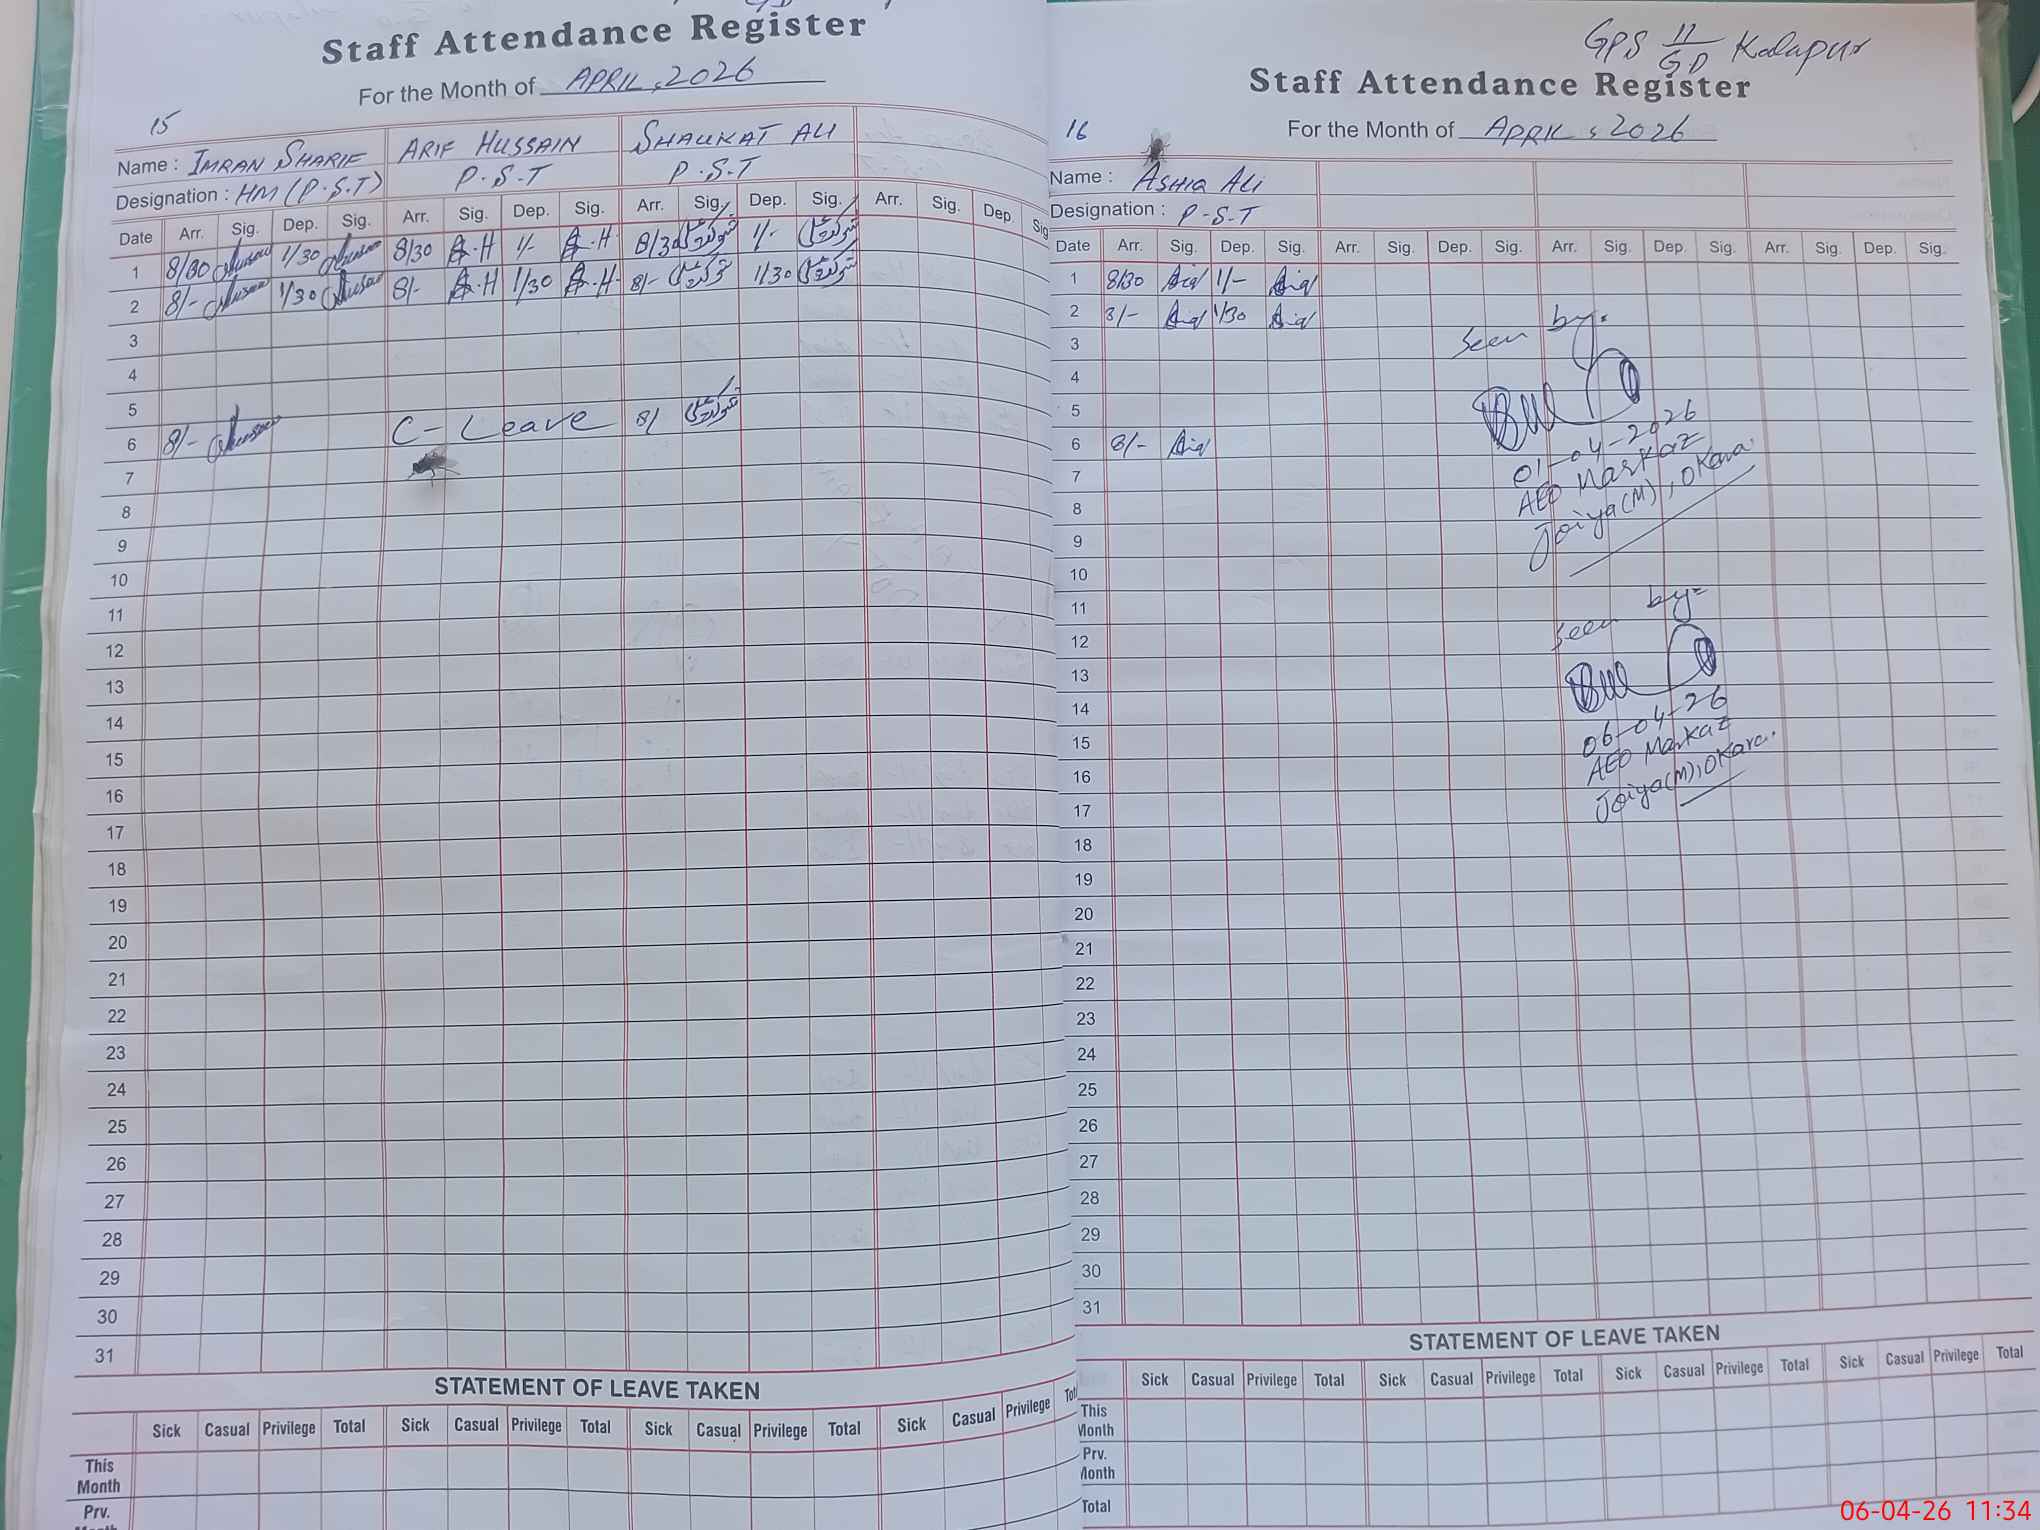 Staff Attendance Register
For the Month of APRIL, 2026
15
Name : IMRAN SHARIF ARIF HUSSAIN SHAUKAT ALI
Designation : HM (P.S.T) P.S.T P.S.T
Date Arr. Sig. Dep. Sig. Arr. Sig. Dep. Sig. Arr. Sig. Dep. Sig. Arr. Sig. Dep. Sig
1 8/30 1/30 8/30 A.H 1/- A.H 8/30 شوکت علی 1/- شوکت علی
2 8/- 1/30 8/- A.H 1/30 A.H 8/- شوکت علی 1/30 شوکت علی
3
4
5
6 8/- C-Leave 8/ شوکت علی
7
8
9
10
11
12
13
14
15
16
17
18
19
20
21
22
23
24
25
26
27
28
29
30
31
STATEMENT OF LEAVE TAKEN
Sick Casual Privilege Total Sick Casual Privilege Total Sick Casual Privilege Total Sick Casual Privilege
This
Month
Prv.
GPS 11/GD Kalapur
Staff Attendance Register
16 For the Month of APRIL, 2026
Name : ASHIQ ALI
Designation : P-S-T
Date Arr. Sig. Dep. Sig. Arr. Sig. Dep. Sig. Arr. Sig. Dep. Sig. Arr. Sig. Dep. Sig.
1 8/30 1/-
2 8/- 1/30
3
4
5
6 8/-
7
8
9
10
11
12
13
14
15
16
17
18
19
20
21
22
23
24
25
26
27
28
29
30
31
Seen by:
01-04-2026
AEO Markaz
Joiya(M), Okara
Seen by:
06-04-26
AEO Markaz
Joiya(M), Okara.
STATEMENT OF LEAVE TAKEN
Sick Casual Privilege Total Sick Casual Privilege Total Sick Casual Privilege Total Sick Casual Privilege Total
This
Month
Prv.
Month
Total
06-04-26 11:34